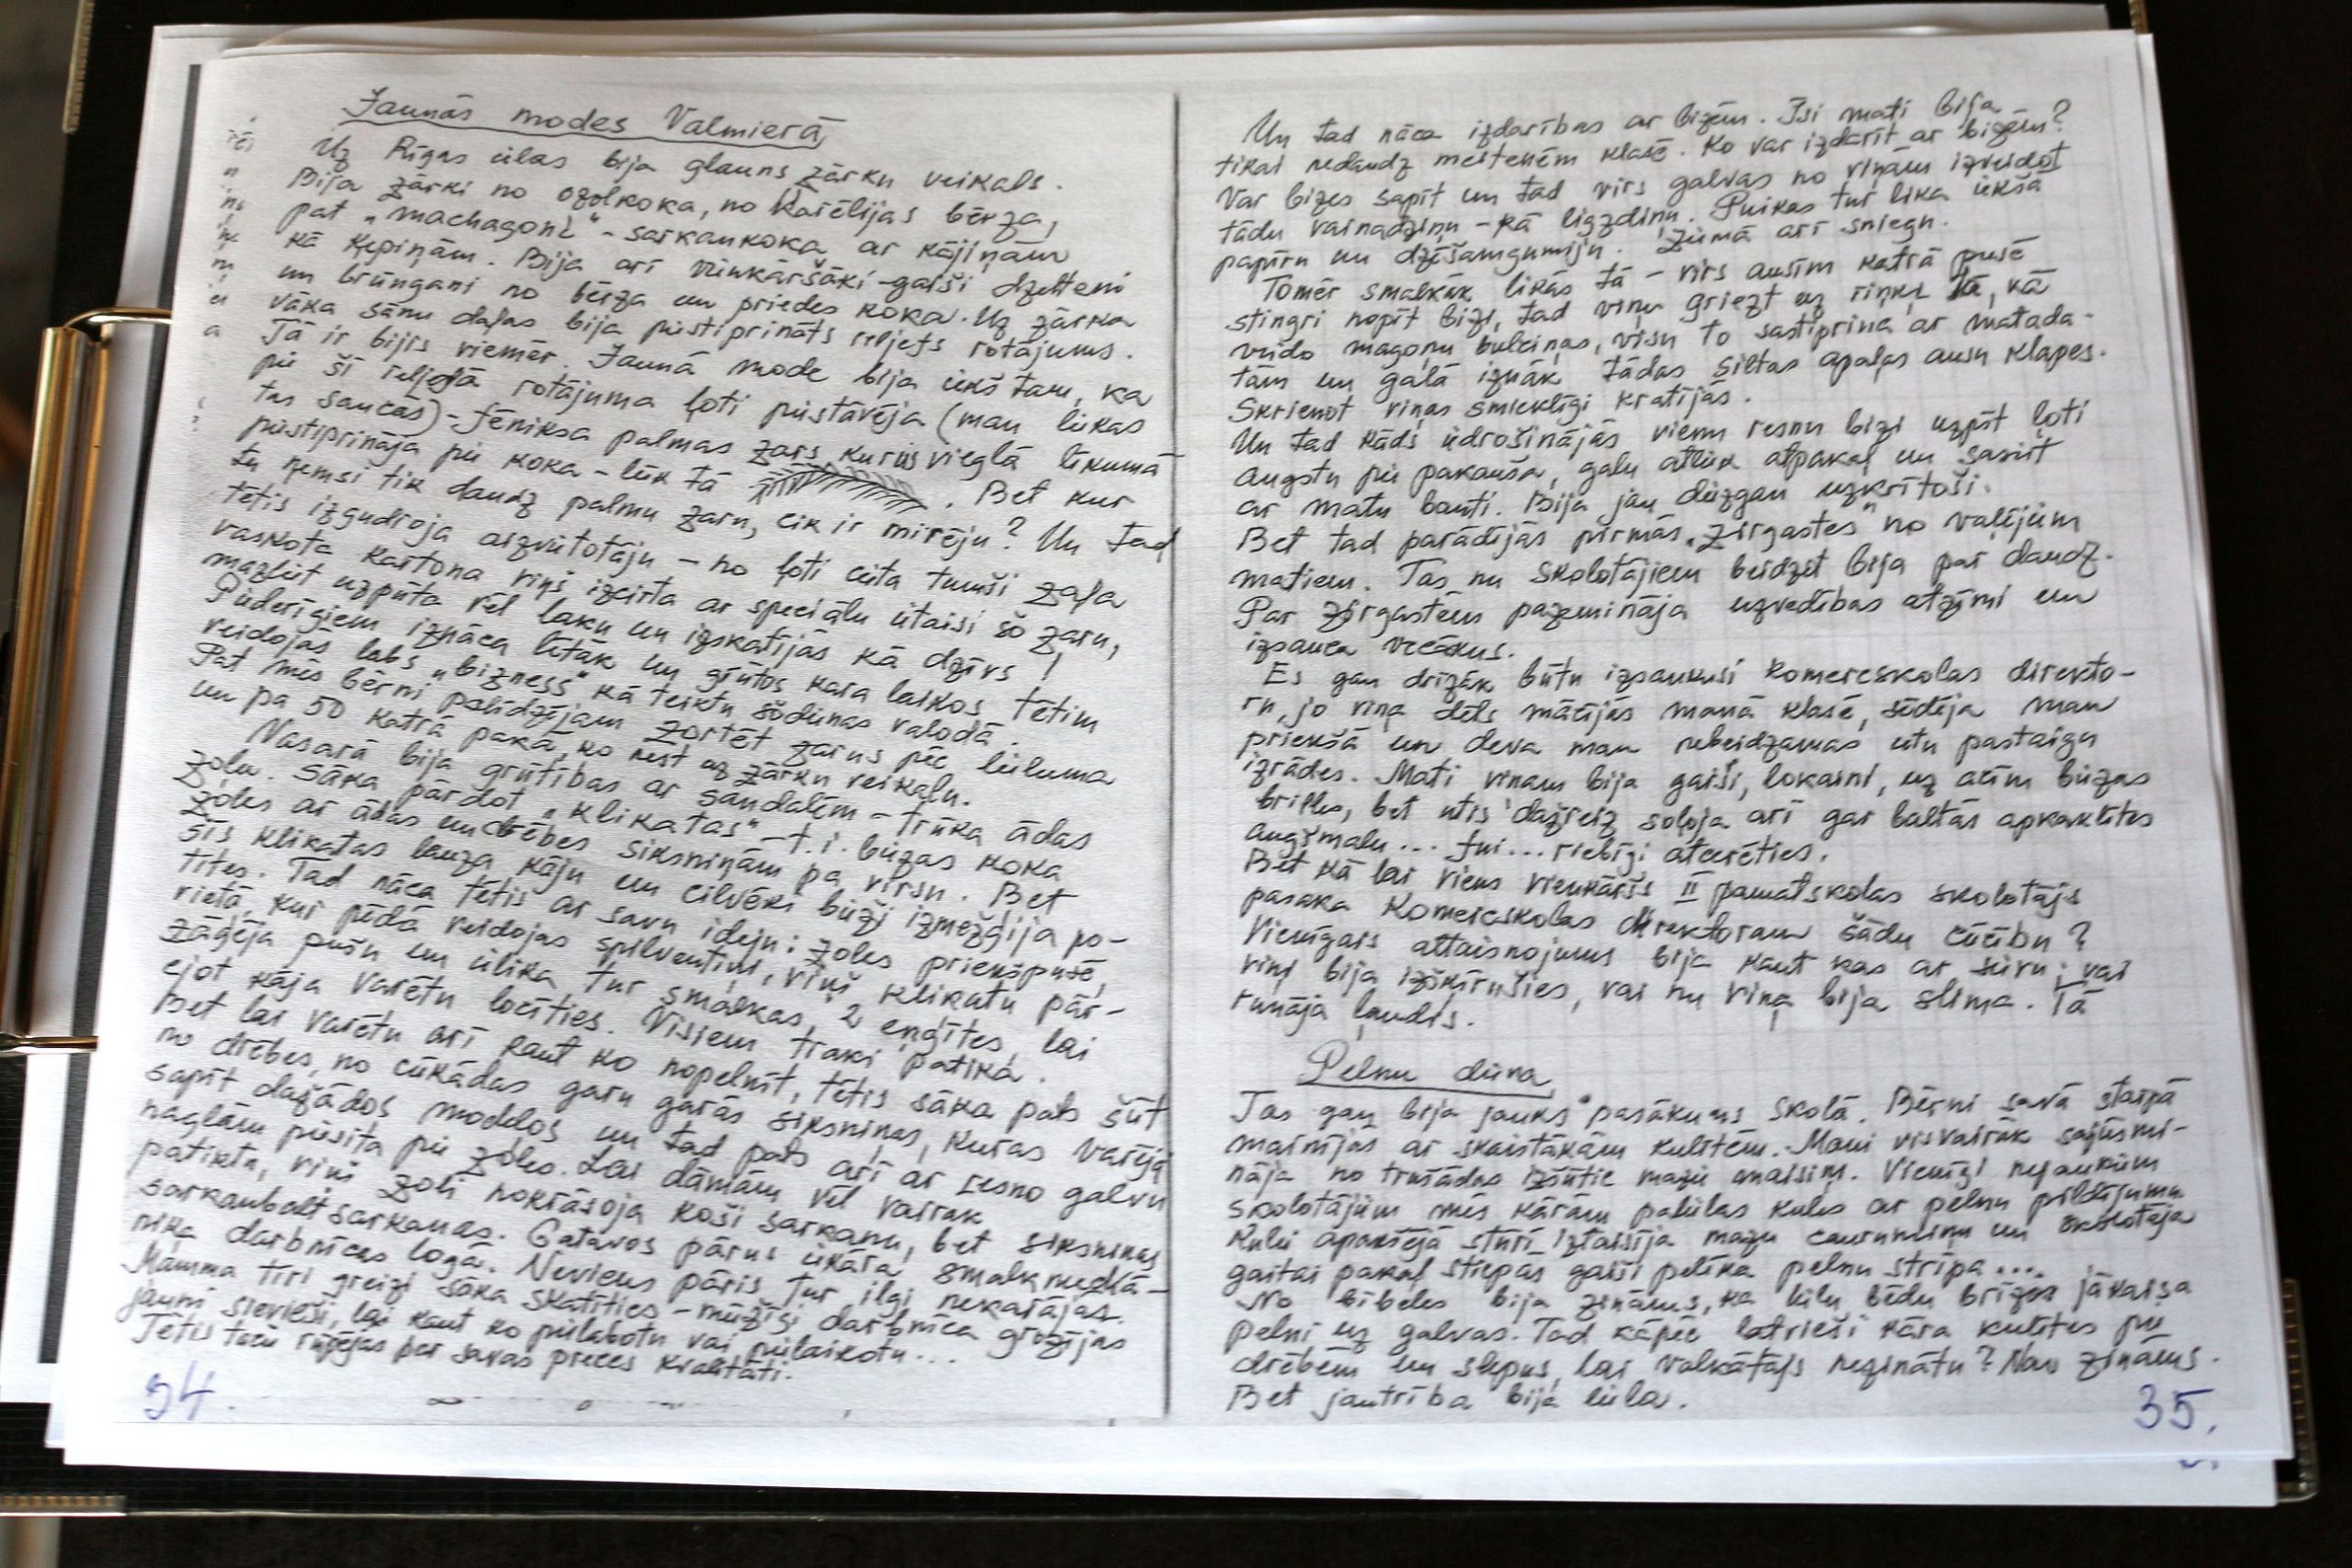 Jaunās modes Valmierā
Uz Rīgas ielas bija glauns zārku veikals.
Bija zārki no ozolkoka, no Karēlijas bērza,
pat „machagoni" - sarkankoka ar kājiņām
kā ķepiņām. Bija arī vienkāršāki - gaiši dzelteni
un brūngani no bērza un priedes koka. Uz zārka
vāka sānu daļas bija piestiprināts reljefs rotājums.
Tā ir bijis vienmēr. Jaunā mode bija iekš tam, ka
pie šī reljefā rotājuma ļoti piestāvēja (man liekas
tas saucās) - fēniksa palmas zars, kuru vieglā līkumā
piestiprināja pie koka - lūk tā . Bet kur
tu ņemsi tik daudz palmu zaru, cik ir mirēju? Un tad
tētis izgudroja aizvietotāju - no ļoti cieta tumši zaļa
vaskota kartona viņš izcirta ar speciālu ietaisi šo zaru,
mazliet uzpūta vēl laku un izskatījās kā dzīvs!
Piederīgiem iznāca lētāk un grūtos kara laikos tētim
veidojās labs „bizness" kā teiktu šodienas valodā.
Pat mēs bērni palīdzējām zortēt zarus pēc lieluma
un pa 50 katrā pakā, ko nest uz zārku veikalu.
Vasarā bija grūtības ar sandalēm - trūka ādas
zoļu. Sāka pārdot „klikatas" - t.i. biezas koka
zoles ar ādas un drēbes siksniņām pa virsu. Bet
šīs klikatas lauza kāju un cilvēki bieži izmežģija po-
tītes. Tad nāca tētis ar savu ideju: zoles priekšpusē,
vietā, kur pēdā veidojas spilventiņi, viņš klikatu pār-
zāģēja pušu un ielika tur smalkas 2 eņģītes, lai
ejot kāja varētu locīties. Visiem traki patika.
Bet lai varētu arī kaut ko nopelnīt, tētis sāka pats šūt
no drēbes, no cūkādas garu garās siksniņas, kuras varēja
sapīt dažādos modeļos un tad pats arī ar resno galvu
naglām piesita pie zoles. Lai dāmām vēl vairāk
patiktu, viņš zoli nokrāsoja koši sarkanu, bet siksniņas
sarkanbalt sarkanas. Gatavos pārus iekāra smalkmechā-
niķa darbnīcas logā. Neviens pāris tur ilgi nekarājās.
Mamma tīri greizi sāka skatīties - mūžīgi darbnīcā grozījas
jauni sievieši, lai kaut ko pielabotu vai pielaikotu...
Tētis taču rūpējās par savas preces kvalitāti.
34.
Un tad nāca izdarības ar bizēm. Īsi mati bija
tikai nedaudz meitenēm klasē. Ko var izdarīt ar bizēm?
Var bizes sapīt un tad virs galvas no viņām izveidot
tādu vainadziņu - kā ligzdiņu. Puikas tur lika iekšā
papīru un dzēšamgumiju. Ziemā arī sniegu.
Tomēr smalkāk likās tā - virs ausīm katrā pusē
stingri nopīt bizi, tad viņu griezt uz riņķi tā, kā
veido magoņu bulciņas, visu to sastiprina ar matada-
tām un galā iznāk tādas siltas apaļas ausu klapes.
Skrienot viņas smieklīgi kratījās.
Un tad kāds iedrošinājās vienu resnu bizi uzpīt ļoti
augstu pie pakauša, galu atliek atpakaļ un sasiet
ar matu banti. Bija jau diezgan uzkrītoši.
Bet tad parādījās pirmās „zirgastes" no vaļējiem
matiem. Tas nu skolotājiem beidzot bija par daudz.
Par zirgastēm pazemināja uzvedības atzīmi un
izsauca vecākus.
Es gan drīzāk būtu izsaukusi komercskolas direkto-
ru, jo viņa dēls mācījās manā klasē, sēdēja man
priekšā un deva man nebeidzamas utu pastaigu
izrādes. Mati viņam bija gaiši, lokaini, uz acīm biezas
brilles, bet utis dažreiz soļoja arī gar baltās apkaklītes
augšmalu... fui... riebīgi atcerēties.
Bet kā lai viens vienkāršs II pamatskolas skolotājs
pasaka Komercskolas direktoram šādu cūcību?
Vienīgais attaisnojums bija kaut kas ar sievu; vai
viņi bija izšķīrušies, vai nu viņa bija slima. Tā
runāja ļaudis.
Pelnu diena
Tas gan bija jauks pasākums skolā. Bērni savā starpā
mainījās ar skaistākām kulītēm. Mani visvairāk sajūsmi-
nāja no trušādas izšūtie mazie maisiņi. Vienīgi nejaukiem
skolotājiem mēs kārām palielas kules ar pelnu pildījumu.
Kulei apakšējā stūrī iztaisīja mazu caurumiņu un skolotāja
gaitai pakaļ stiepās gaiši pelēka pelnu strīpa...
No bībeles bija zināms, ka lielu bēdu brīžos jākaisa
pelni uz galvas. Tad kāpēc latvieši kāra kulītes pie
drēbēm un slepus, lai valkātājs nezinātu? Nav zināms.
Bet jautrība bija liela.
35.